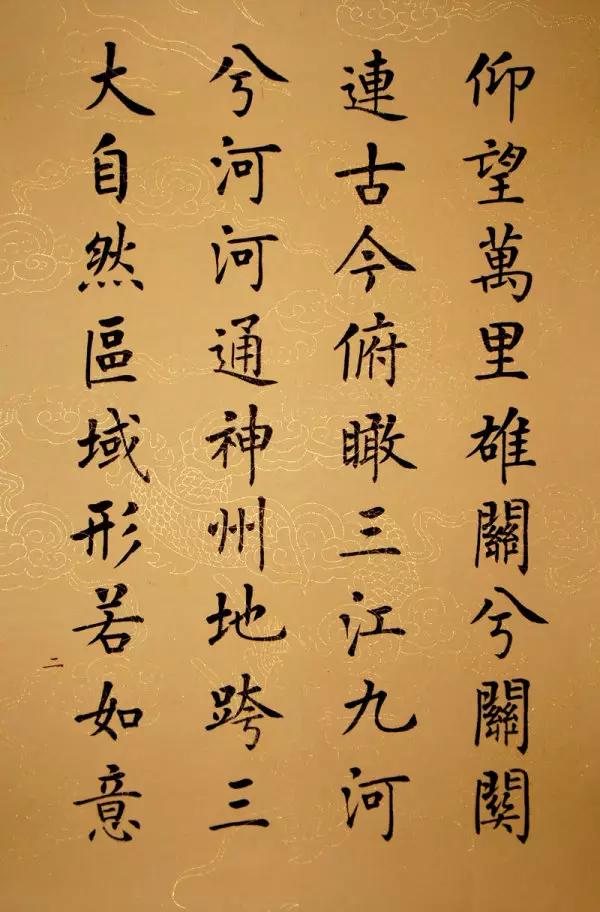 仰望萬里雄關兮關関
連古今俯瞰三江九河
兮河河通神州地跨三
大自然區域形若如意
二